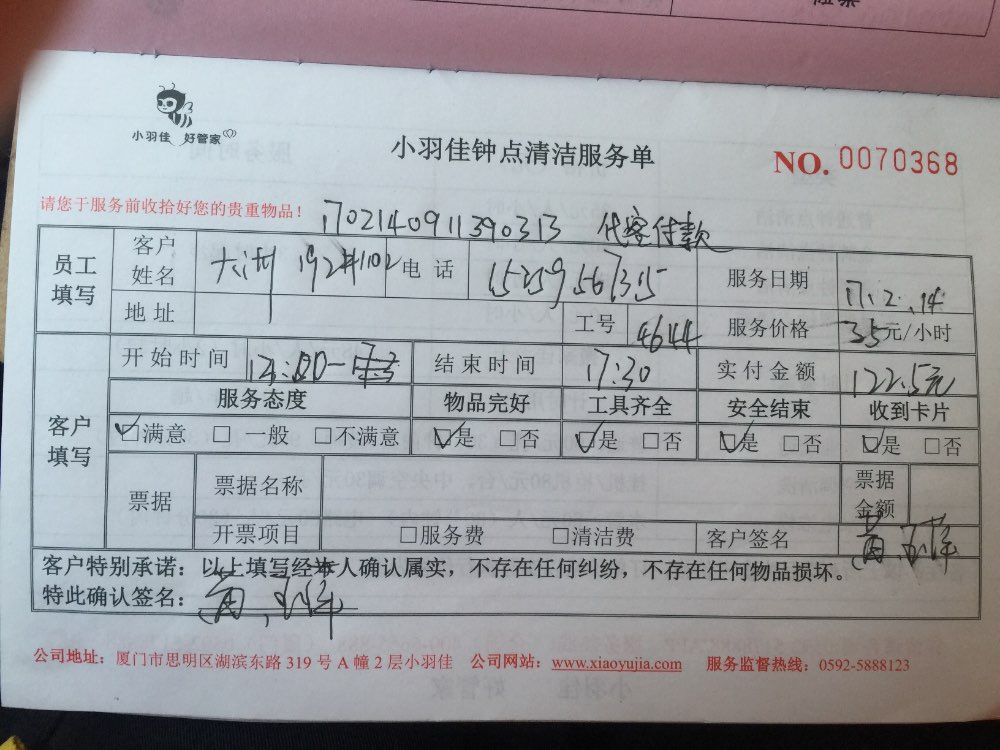 小羽佳 好管家
小羽佳钟点清洁服务单
NO. 0070368
请您于服务前收拾好您的贵重物品！
1702140911390313 代客付款
员工填写 客户姓名 192#1102 电话 15259567315 服务日期 17.2.14
地址 工号 4644 服务价格 35元/小时
客户填写 开始时间 结束时间 17:30 实付金额 122.5元
服务态度 物品完好 工具齐全 安全结束 收到卡片
☑满意 □一般 □不满意 ☑是 □否 ☑是 □否 ☑是 □否 ☑是 □否
票据 票据名称 票据金额
开票项目 □服务费 □清洁费 客户签名
客户特别承诺：以上填写经本人确认属实，不存在任何纠纷，不存在任何物品损坏。
特此确认签名：
公司地址：厦门市思明区湖滨东路 319 号 A 幢 2 层小羽佳 公司网站：www.xiaoyujia.com 服务监督热线：0592-5888123